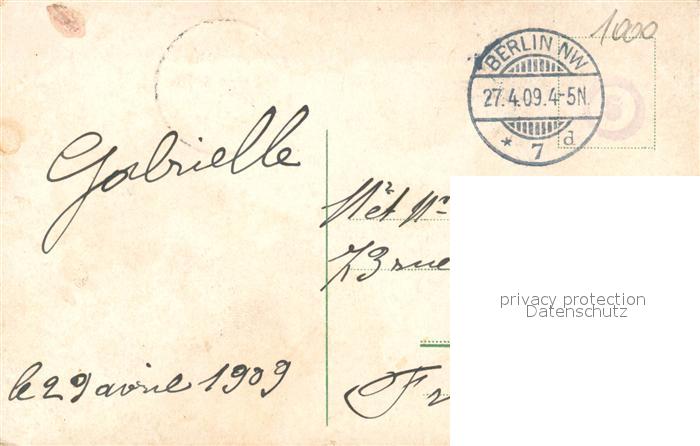 1000
BERLIN NW
27.4.09.4-5N.
* 7 d
Gabrielle
Mr et Me
73 rue
privacy protection
Datenschutz
le 29 avril 1909
Fr